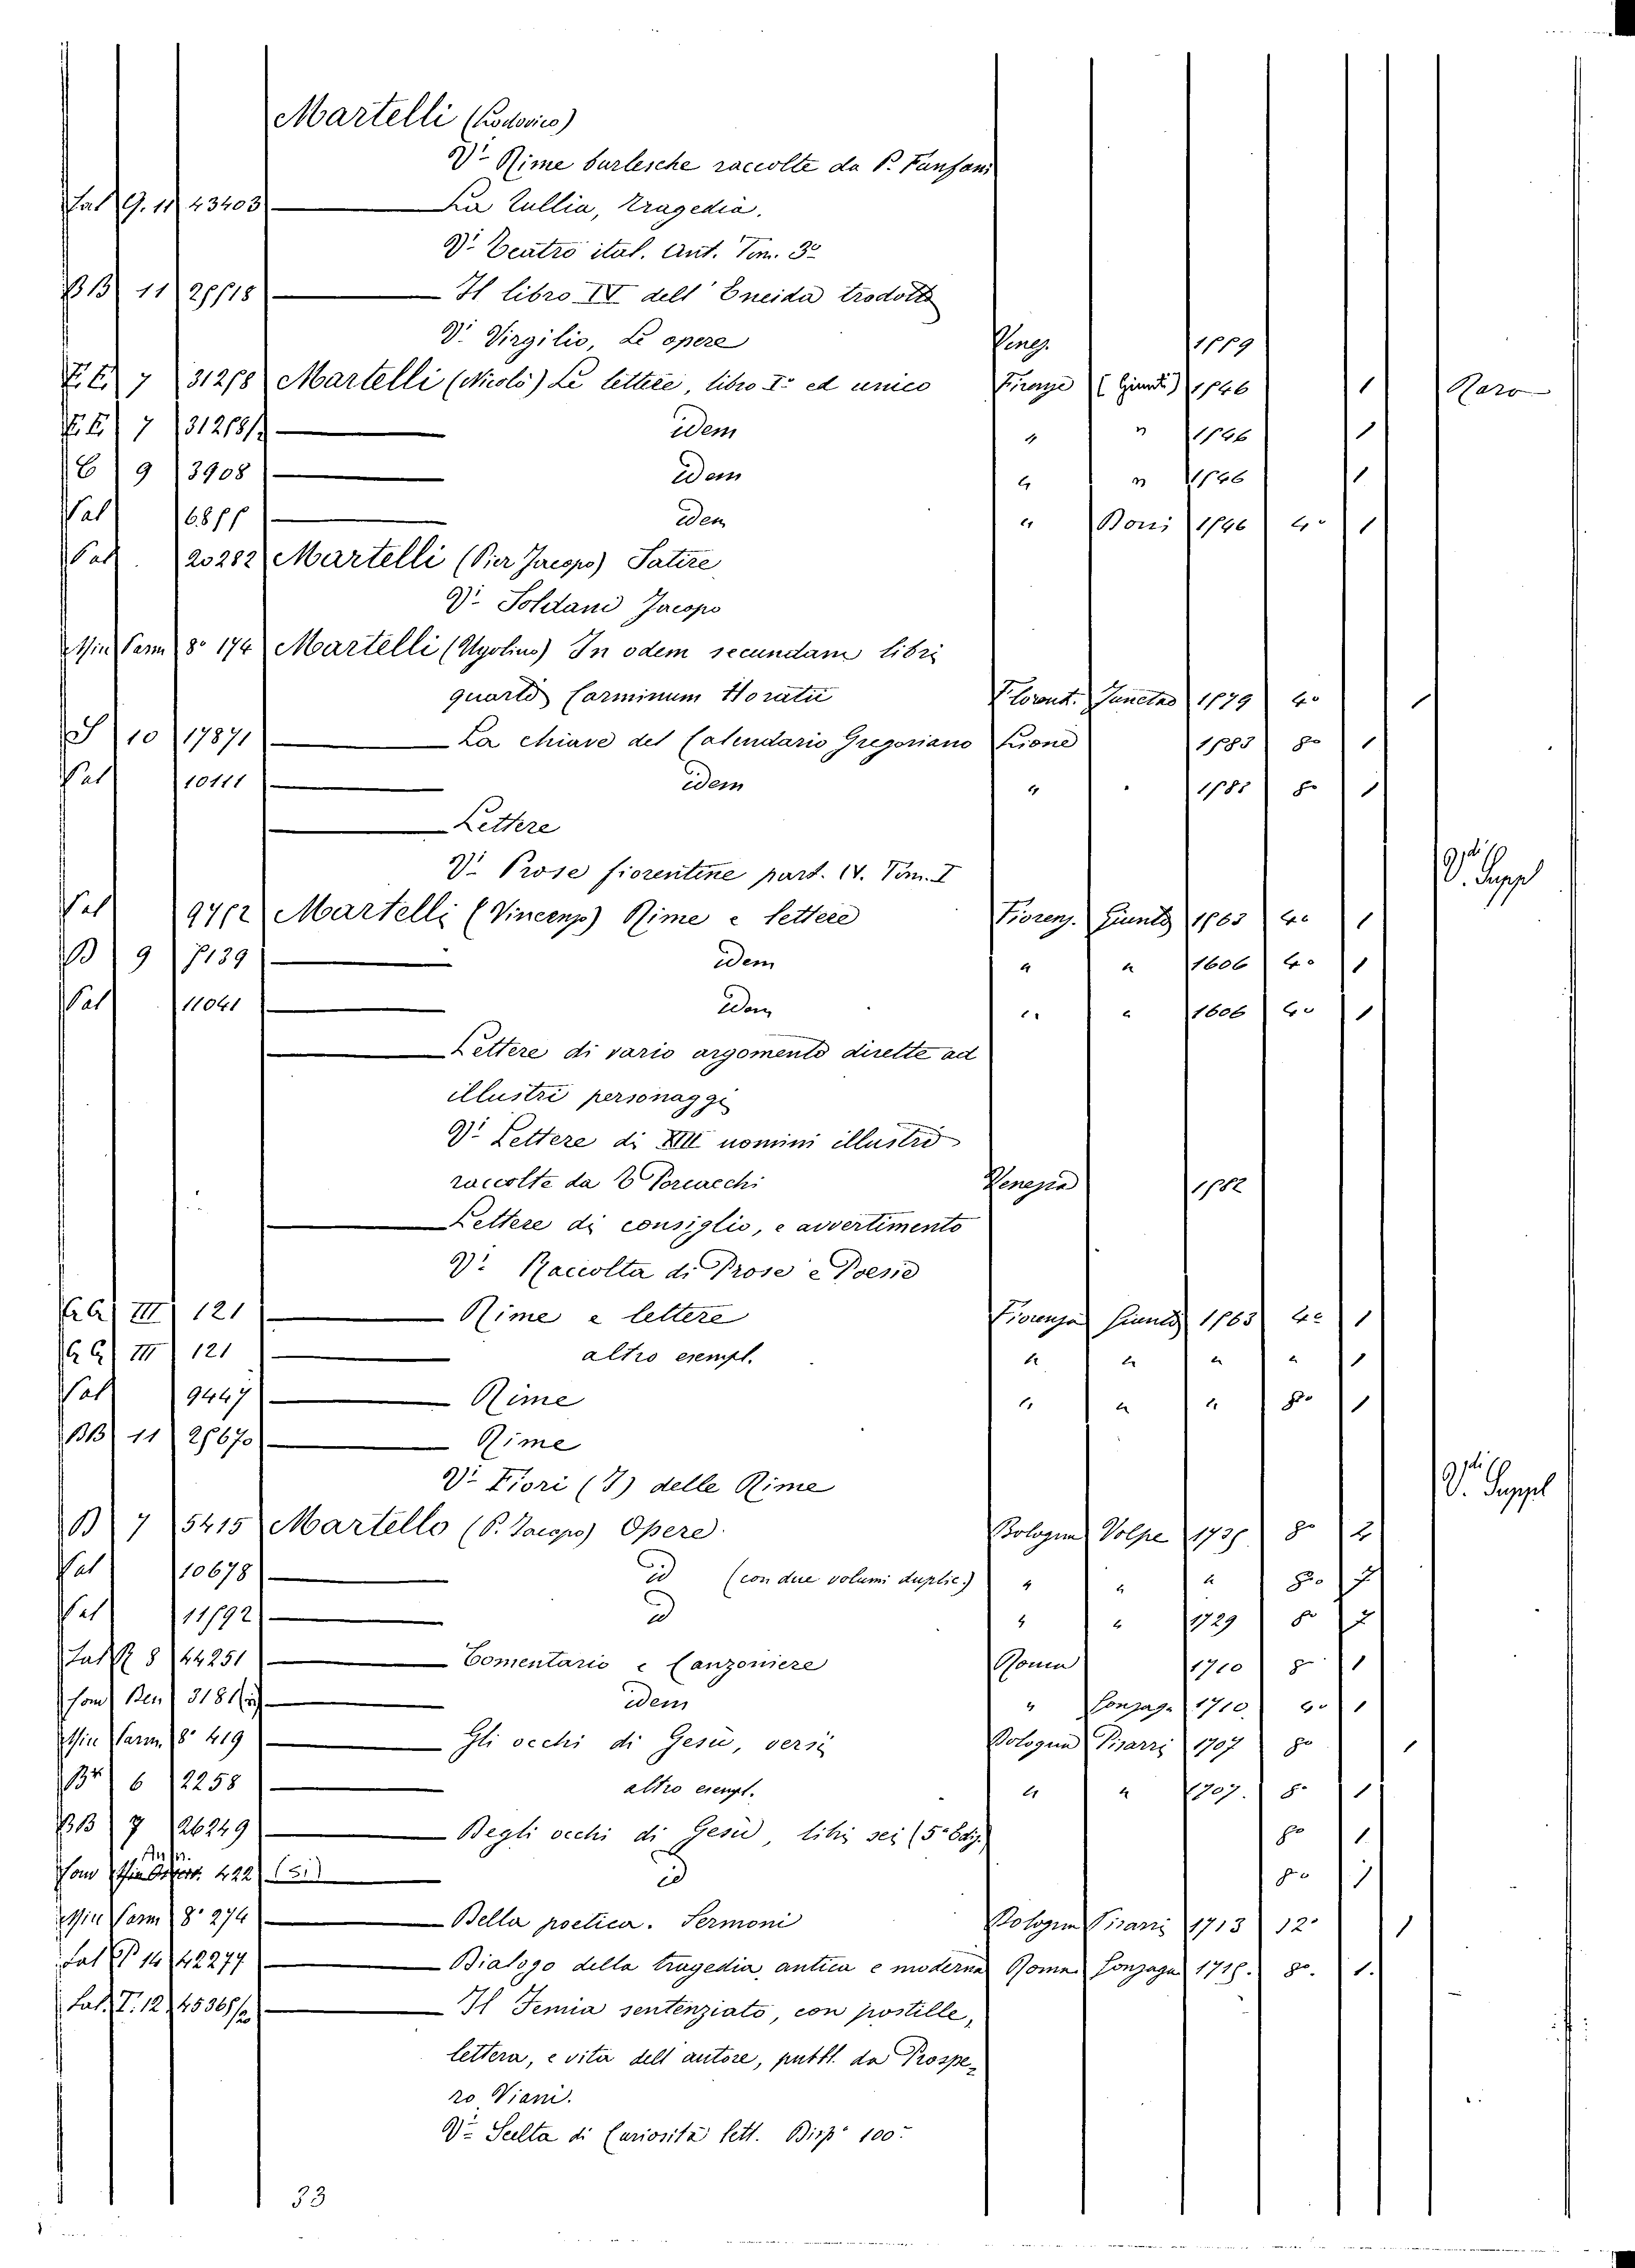 Martelli (Lodovico)
V. Rime burlesche raccolte da P. Fanfani
Lat G. 11 43403 La Tullia, tragedia.
V. Teatro ital. Ant. Tom. 3º
BB 11 25518 Il libro IV dell' Eneida tradotto
V. Virgilio, Le opere Venez. 1559
E.E. 7 31258 Martelli (Nicolò) Le lettere, libro Iº ed unico Firenze (Giunti) 1546 1 Raro
E.E. 7 31258/2 idem " " 1546 1
E 9 3908 idem " " 1546 1
Pal 6855 idem " Doni 1546 4º 1
Pal. 20282 Martelli (Pier Jacopo) Satire
V. Soldani Jacopo
Min Parm 8º 174 Martelli (Ugolino) In odem secundam libri
quarti Carminum Horatii Florent. Junctas 1579 4º 1
S 10 17871 La chiave del Calendario Gregoriano Lione 1583 8º 1
Pal 10111 idem " 1583 8º 1
Lettere
V. Prose fiorentine part. IV. Tom. I
V. Suppl
Pal 9752 Martelli (Vincenzo) Rime e lettere Fiorenz. Giunti 1563 4º 1
B 9 5139 idem " " 1606 4º 1
Pal 11041 idem " " 1606 4º 1
Lettere di vario argomento dirette ad
illustri personaggi
V. Lettere di XIII uomini illustri
raccolte da T Porcacchi Venezia 1582
Lettere di consiglio, e avvertimento
V. Raccolta di Prose e Poesie
G.G. III 121 Rime e lettere Fiorenza Giunti 1563 4º 1
G.G. III 121 altro esempl. " " " " 1
Pal 9447 Rime " " " 8º 1
BB 11 25670 Rime
V. Fiori (I) delle Rime
V. Suppl
B 7 5415 Martello (P. Jacopo) Opere Bologna Volpe 1735 8º 2
Pal 10678 id (con due volumi duplic.) " " " 8º 7
Pal 11592 id " " 1729 8º 7
Lat R 8 44251 Comentario e Canzoniere Roma 1710 8º 1
Com Ben 318 idem " Gonzag. 1710 4º 1
Min Parm. 8º 419 Gli occhi di Gesù, versi Bologna Pisarri 1707 8º 1
Br 6 2258 altro esempl. " " 1707. 8º 1
BB 7 26249 Degli occhi di Gesù, libri sei (5ª Ediz.) 8º 1
Com Min 422 (51) id 8º 1
Min Parm 8º 274 Della poetica. Sermoni Bologna Pisarri 1713 12º 1
Lat P 14 42277 Dialogo della tragedia antica e moderna Roma Gonzaga 1715. 8º. 1.
Lat. T. 12 45365/20 Il Femia sentenziato, con postille,
lettera, e vita dell autore, pubbl. da Prospe-
ro Viani.
V. Scelta di Curiosità lett. Disp.ª 100ª
33